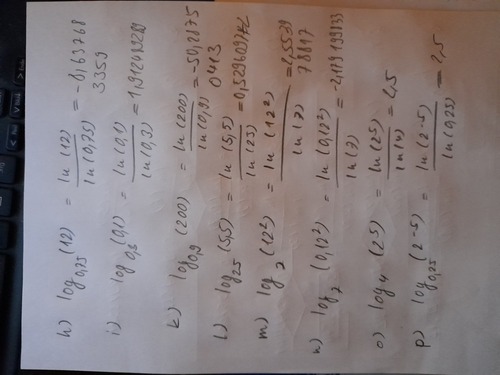 h) log₀,₇₅ (12) = ln (12) / ln (0,75) = -8,63768
3359
i) log₀,₃ (0,1) = ln (0,1) / ln (0,3) = 1,912489289
k) log₀,₉ (200) = ln (200) / ln (0,9) = -50,2875
0413
l) log₂₅ (5,5) = ln (5,5) / ln (25)
m) log₇ (12²) = ln (12²) / ln (7) = 2,5539
78817
n) log₇ (0,12²) = ln (0,12²) / ln (7)
o) log₄ (25) = ln (25) / ln (4) = 2,5
p) log₀,₂₅ (2-5) = ln (2-5) / ln (0,25) = 2,5